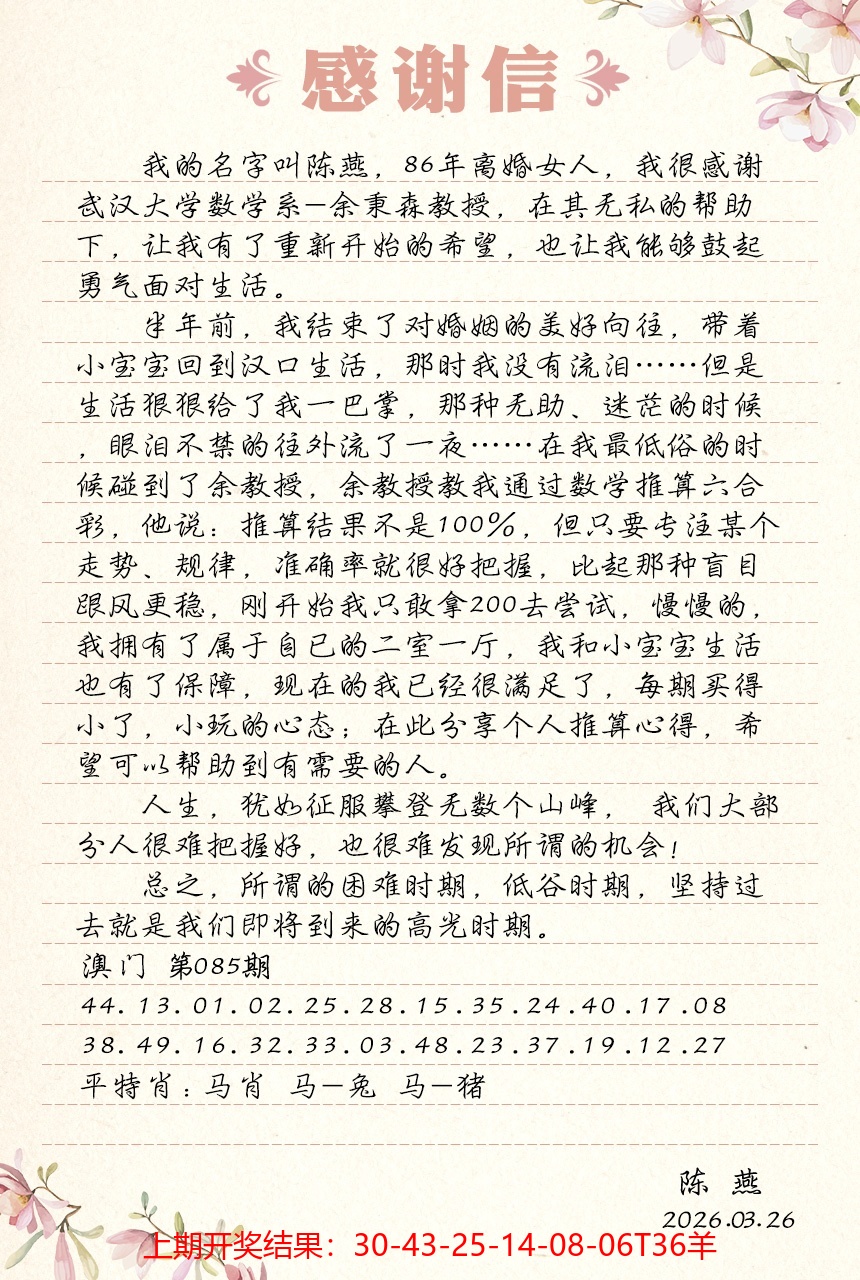 感谢信
我的名字叫陈燕，86年离婚女人，我很感谢
武汉大学数学系—余秉森教授，在其无私的帮助
下，让我有了重新开始的希望，也让我能够鼓起
勇气面对生活。
半年前，我结束了对婚姻的美好向往，带着
小宝宝回到汉口生活，那时我没有流泪……但是
生活狠狠给了我一巴掌，那种无助、迷茫的时候
，眼泪不禁的往外流了一夜……在我最低俗的时
候碰到了余教授，余教授教我通过数学推算六合
彩，他说：推算结果不是100%，但只要专注某个
走势、规律，准确率就很好把握，比起那种盲目
跟风更稳，刚开始我只敢拿200去尝试，慢慢的，
我拥有了属于自已的二室一厅，我和小宝宝生活
也有了保障，现在的我已经很满足了，每期买得
小了，小玩的心态；在此分享个人推算心得，希
望可以帮助到有需要的人。
人生，犹如征服攀登无数个山峰， 我们大部
分人很难把握好，也很难发现所谓的机会！
总之，所谓的困难时期，低谷时期，坚持过
去就是我们即将到来的高光时期。
澳门 第085期
44.13.01.02.25.28.15.35.24.40.17.08
38.49.16.32.33.03.48.23.37.19.12.27
平特肖：马肖 马—兔 马—猪
陈 燕
2026.03.26
上期开奖结果：30-43-25-14-08-06T36羊